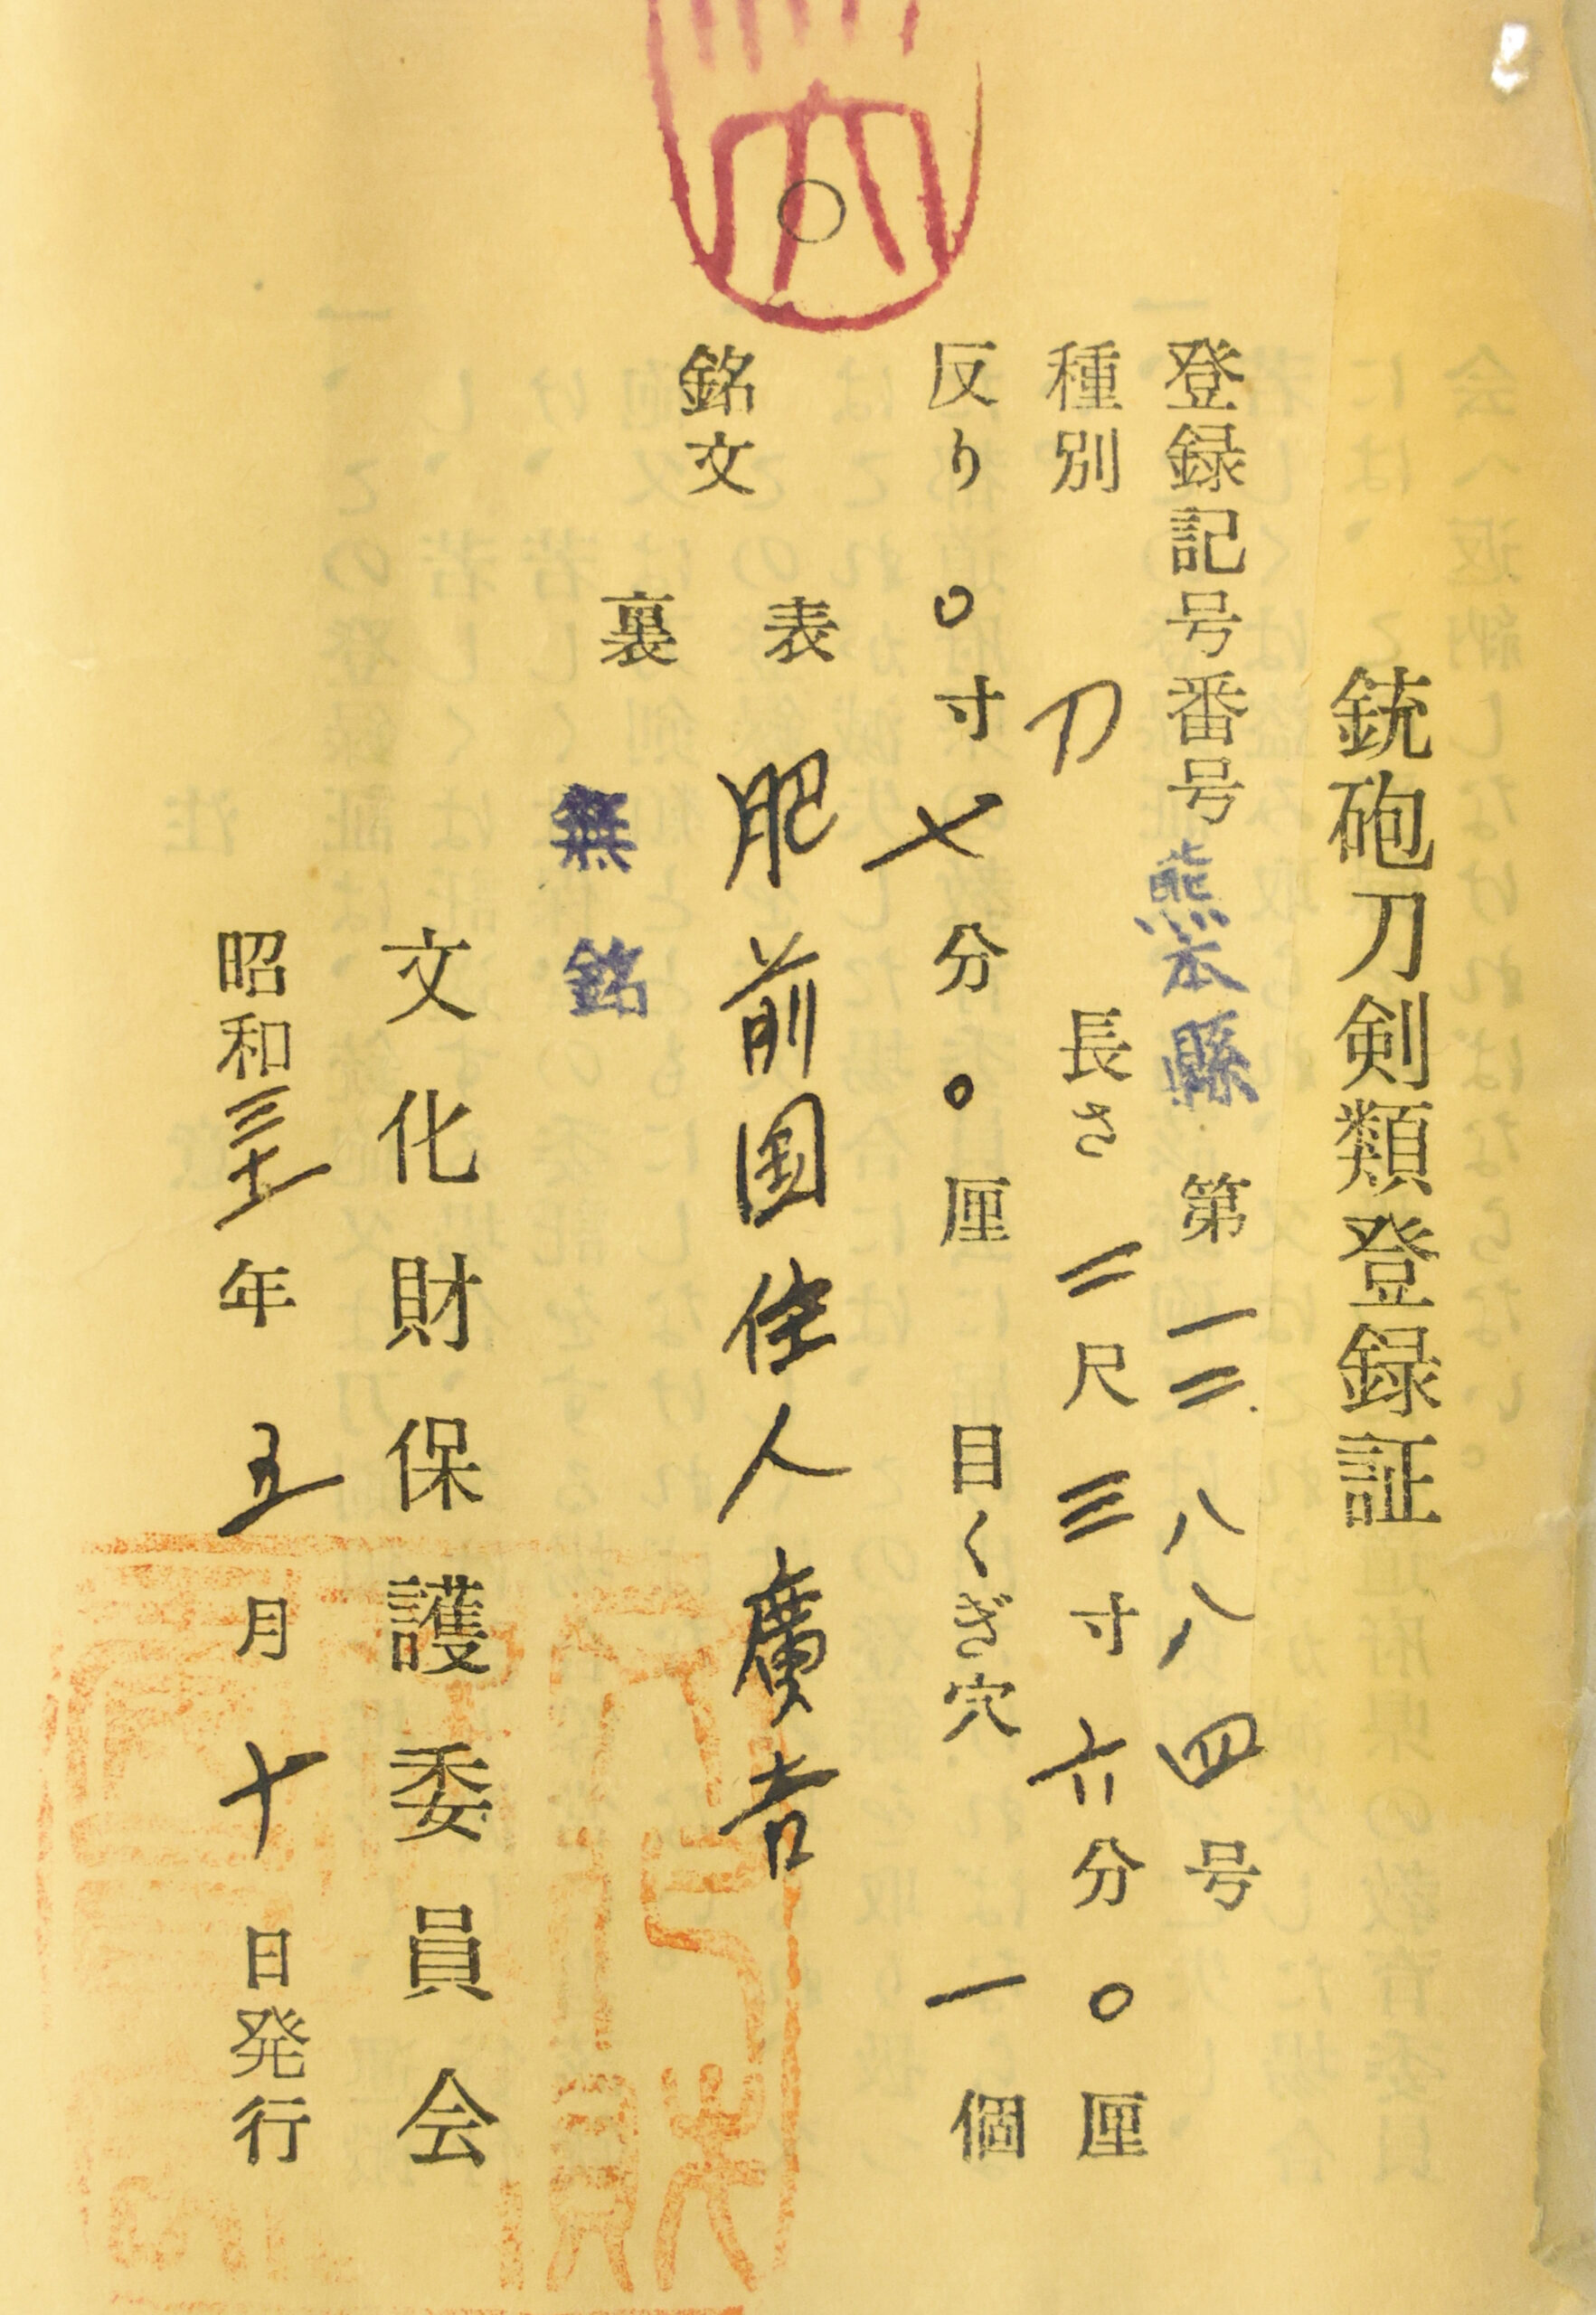 銃砲刀剣類登録証
登録記号番号 熊本縣 第一二八八四号
種別 刀 長さ 二尺三寸六分〇厘
反り 〇寸七分〇厘 目くぎ穴 一個
銘文
表 肥前国住人廣吉
裏 無銘
文化財保護委員会
昭和三十一年五月十日発行